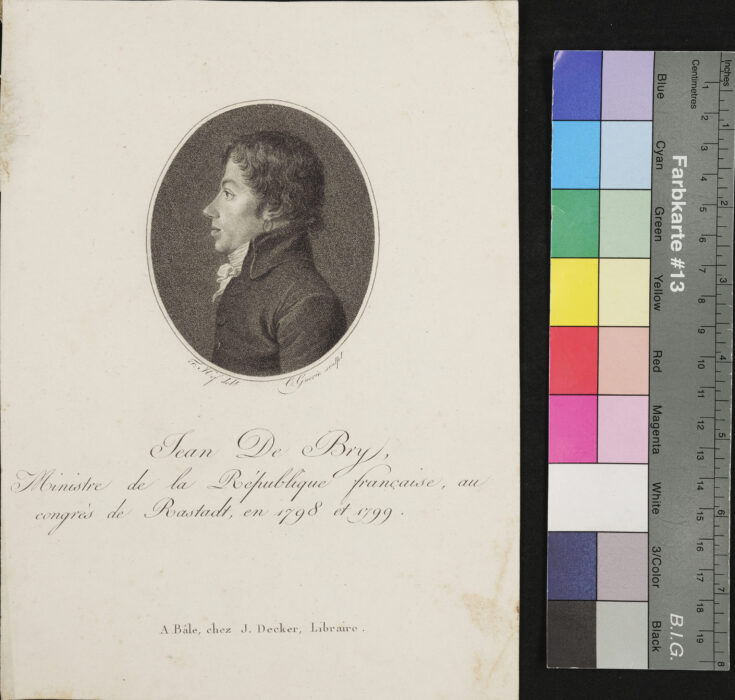 delt.
C Guerin sculpt
Jean De Bry,
Ministre de la République française, au
congrès de Rastadt, en 1798 et 1799.
A Bâle, chez J. Decker, Libraire.
Inches
Centimetres
1 2 3 4 5 6 7 8 9 10 11 12 13 14 15 16 17 18 19
1 2 3 4 5 6 7 8
Farbkarte #13
B.I.G.
Blue
Cyan
Green
Yellow
Red
Magenta
White
3/Color
Black